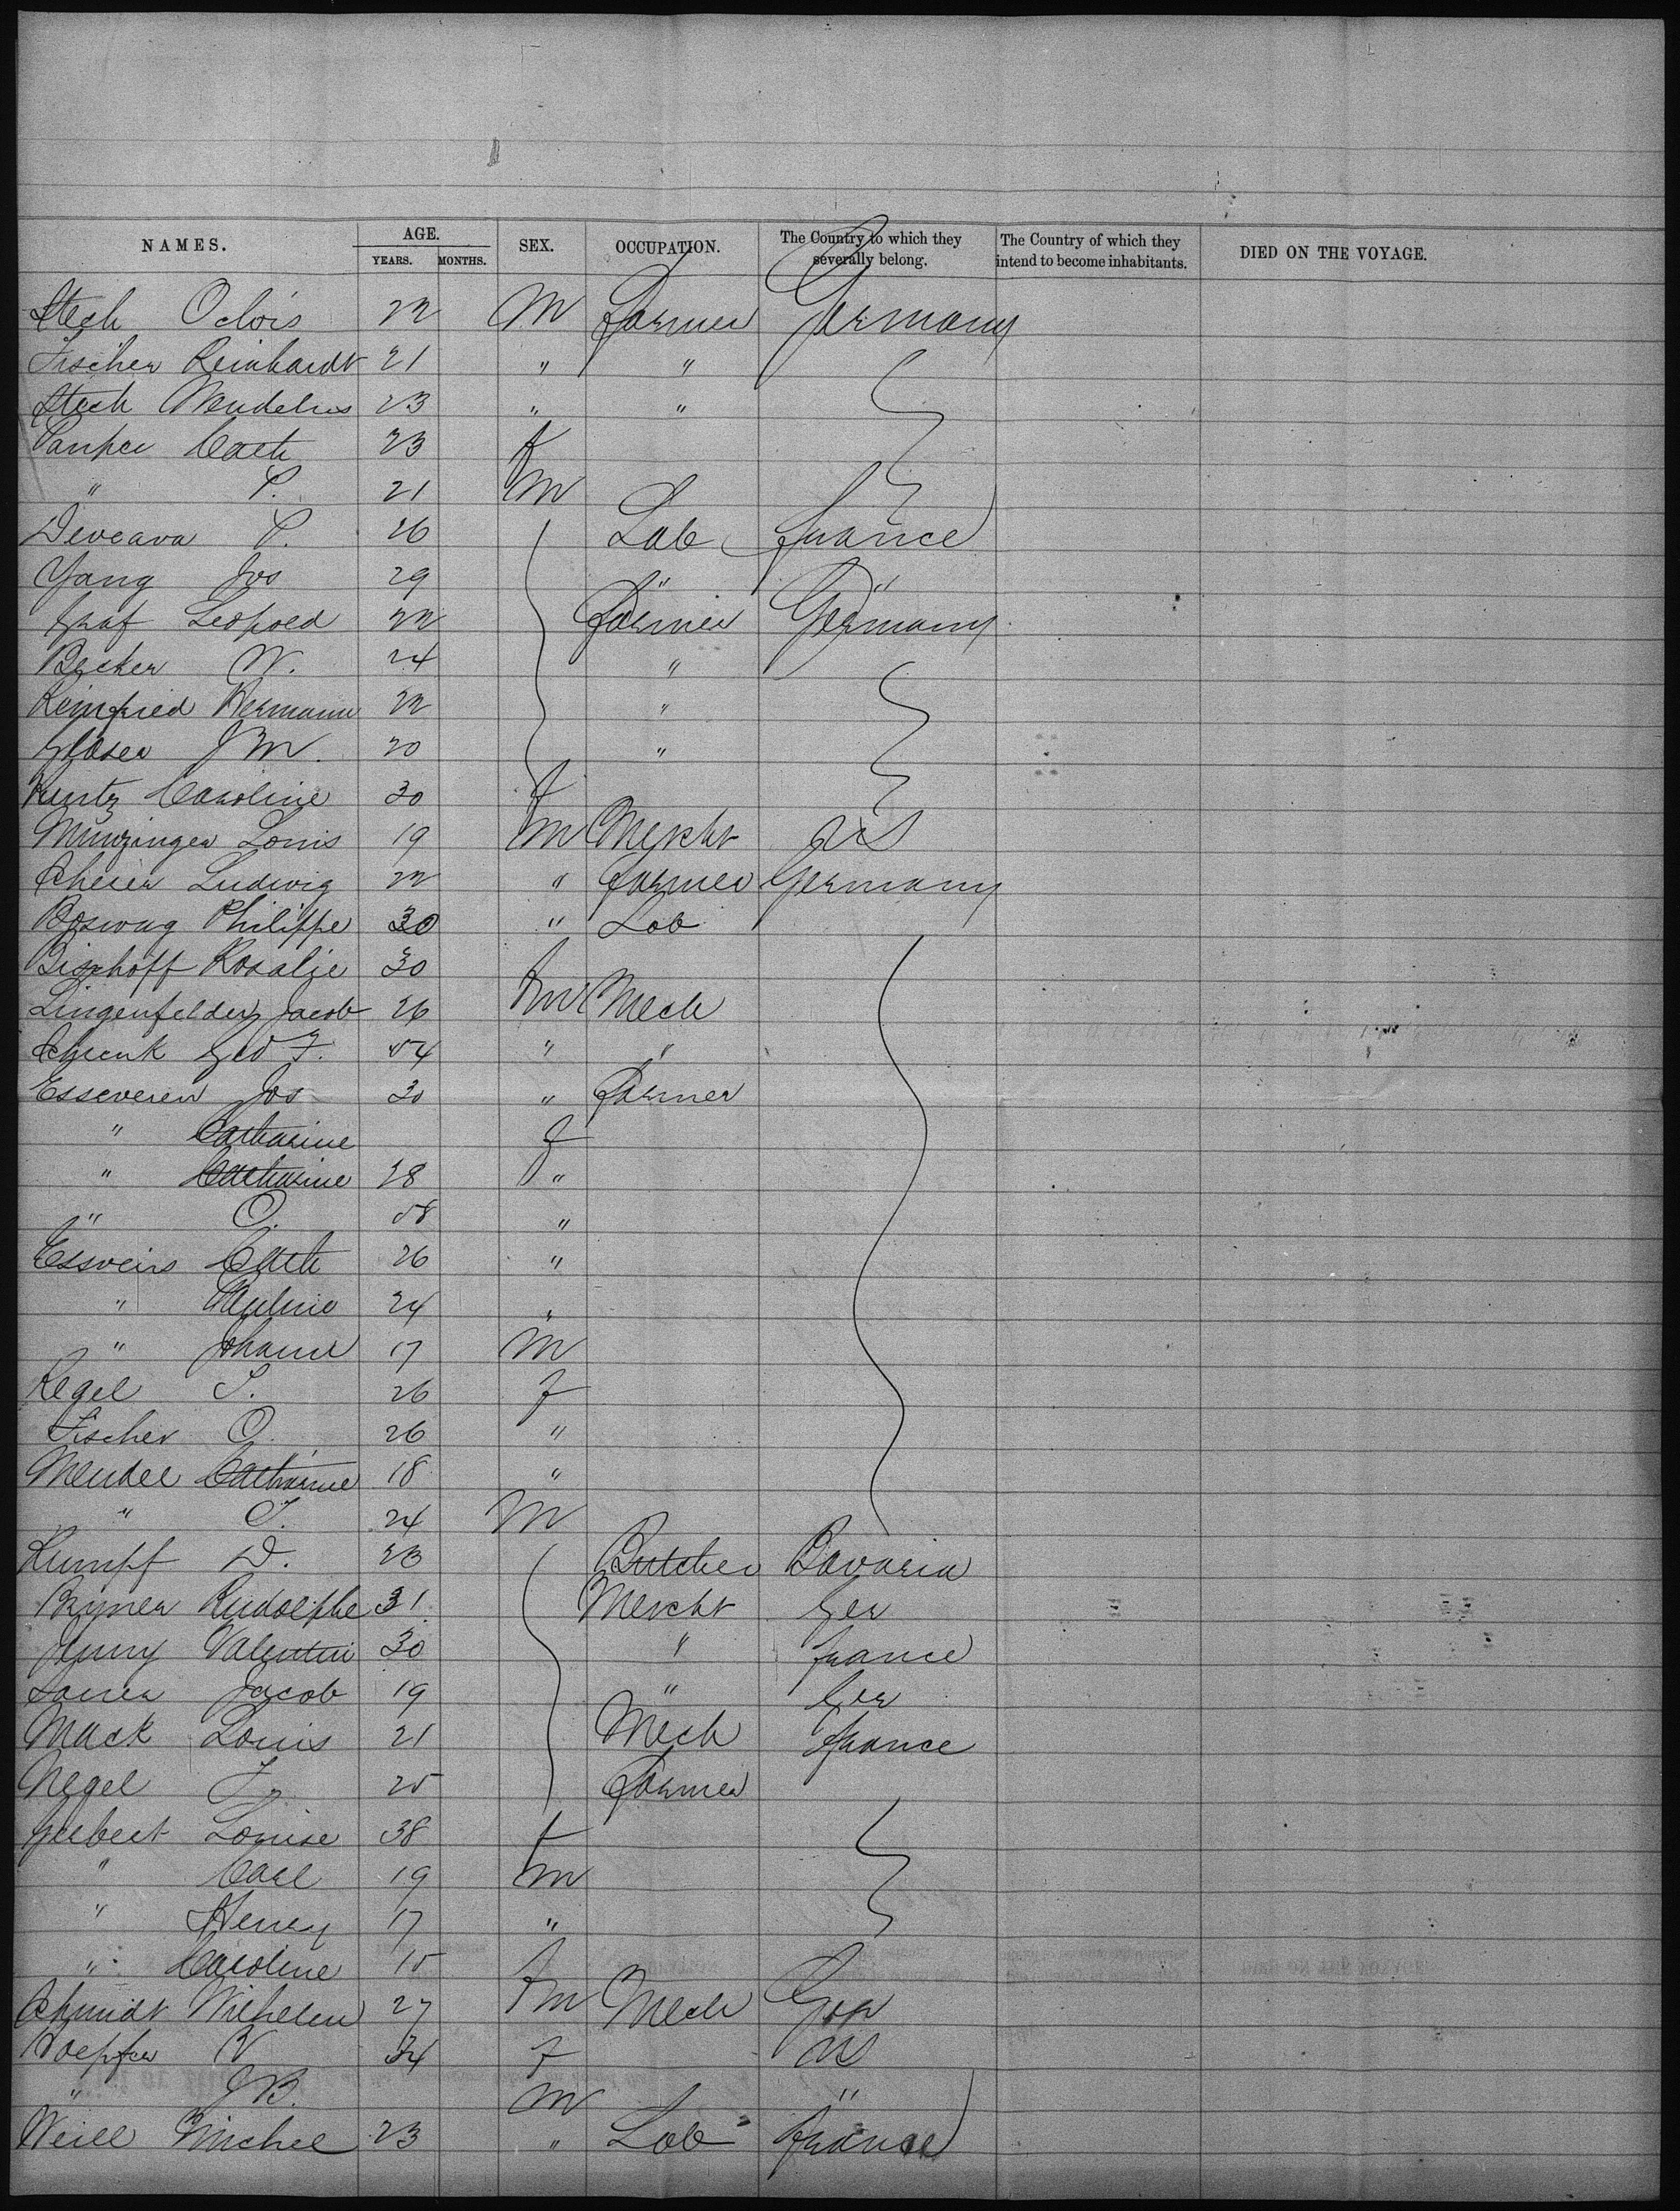 NAMES. AGE. SEX. OCCUPATION. The Country to which they severally belong. The Country of which they intend to become inhabitants. DIED ON THE VOYAGE.
YEARS. MONTHS.
Stech 22 M Farmer Germany
Fischer Reinhardt 21 " "
Stech 23 " "
Cath 23 F
" P. 21 M
P. 26 Lab France
Yang Jos 29 " "
Graf Leopold 22 Farmer Germany
Becker W. 24 "
Reinfried Hermann 22 "
Glaser J M. 20 "
Kuntz Caroline 30 F
Munzinger Louis 19 M Mercht US
Scherer Ludwig 22 " Farmer Germany
Philippe 30 " Lab
Bischoff Rosalie 30 F
Lingenfelder Jacob 26 M Mech
Schenk Geo F. 54 " "
Jos 30 " Farmer
" Catharine F
" Catharine 28 "
" C. 58 "
Cath 26 "
" 24 "
" Johann 17 M
Regel S. 26 F
Fischer C. 26 "
Mendel Catharine 18 "
" 24 M
Kumpf D. 23 Butcher Bavaria
Rudolphe 31 Mercht Ger
Jenny Valentin 30 " France
Jacob 19 " Ger
Mack Louis 21 Mech France
Negel 25 Farmer
Louise 38 F
" Carl 19 M
" Henry 17 "
" Caroline 15 F
Schmidt Wilhelm 27 M Mech Ger
34 F US
" J B. M "
Weill Michel 23 " Lab France